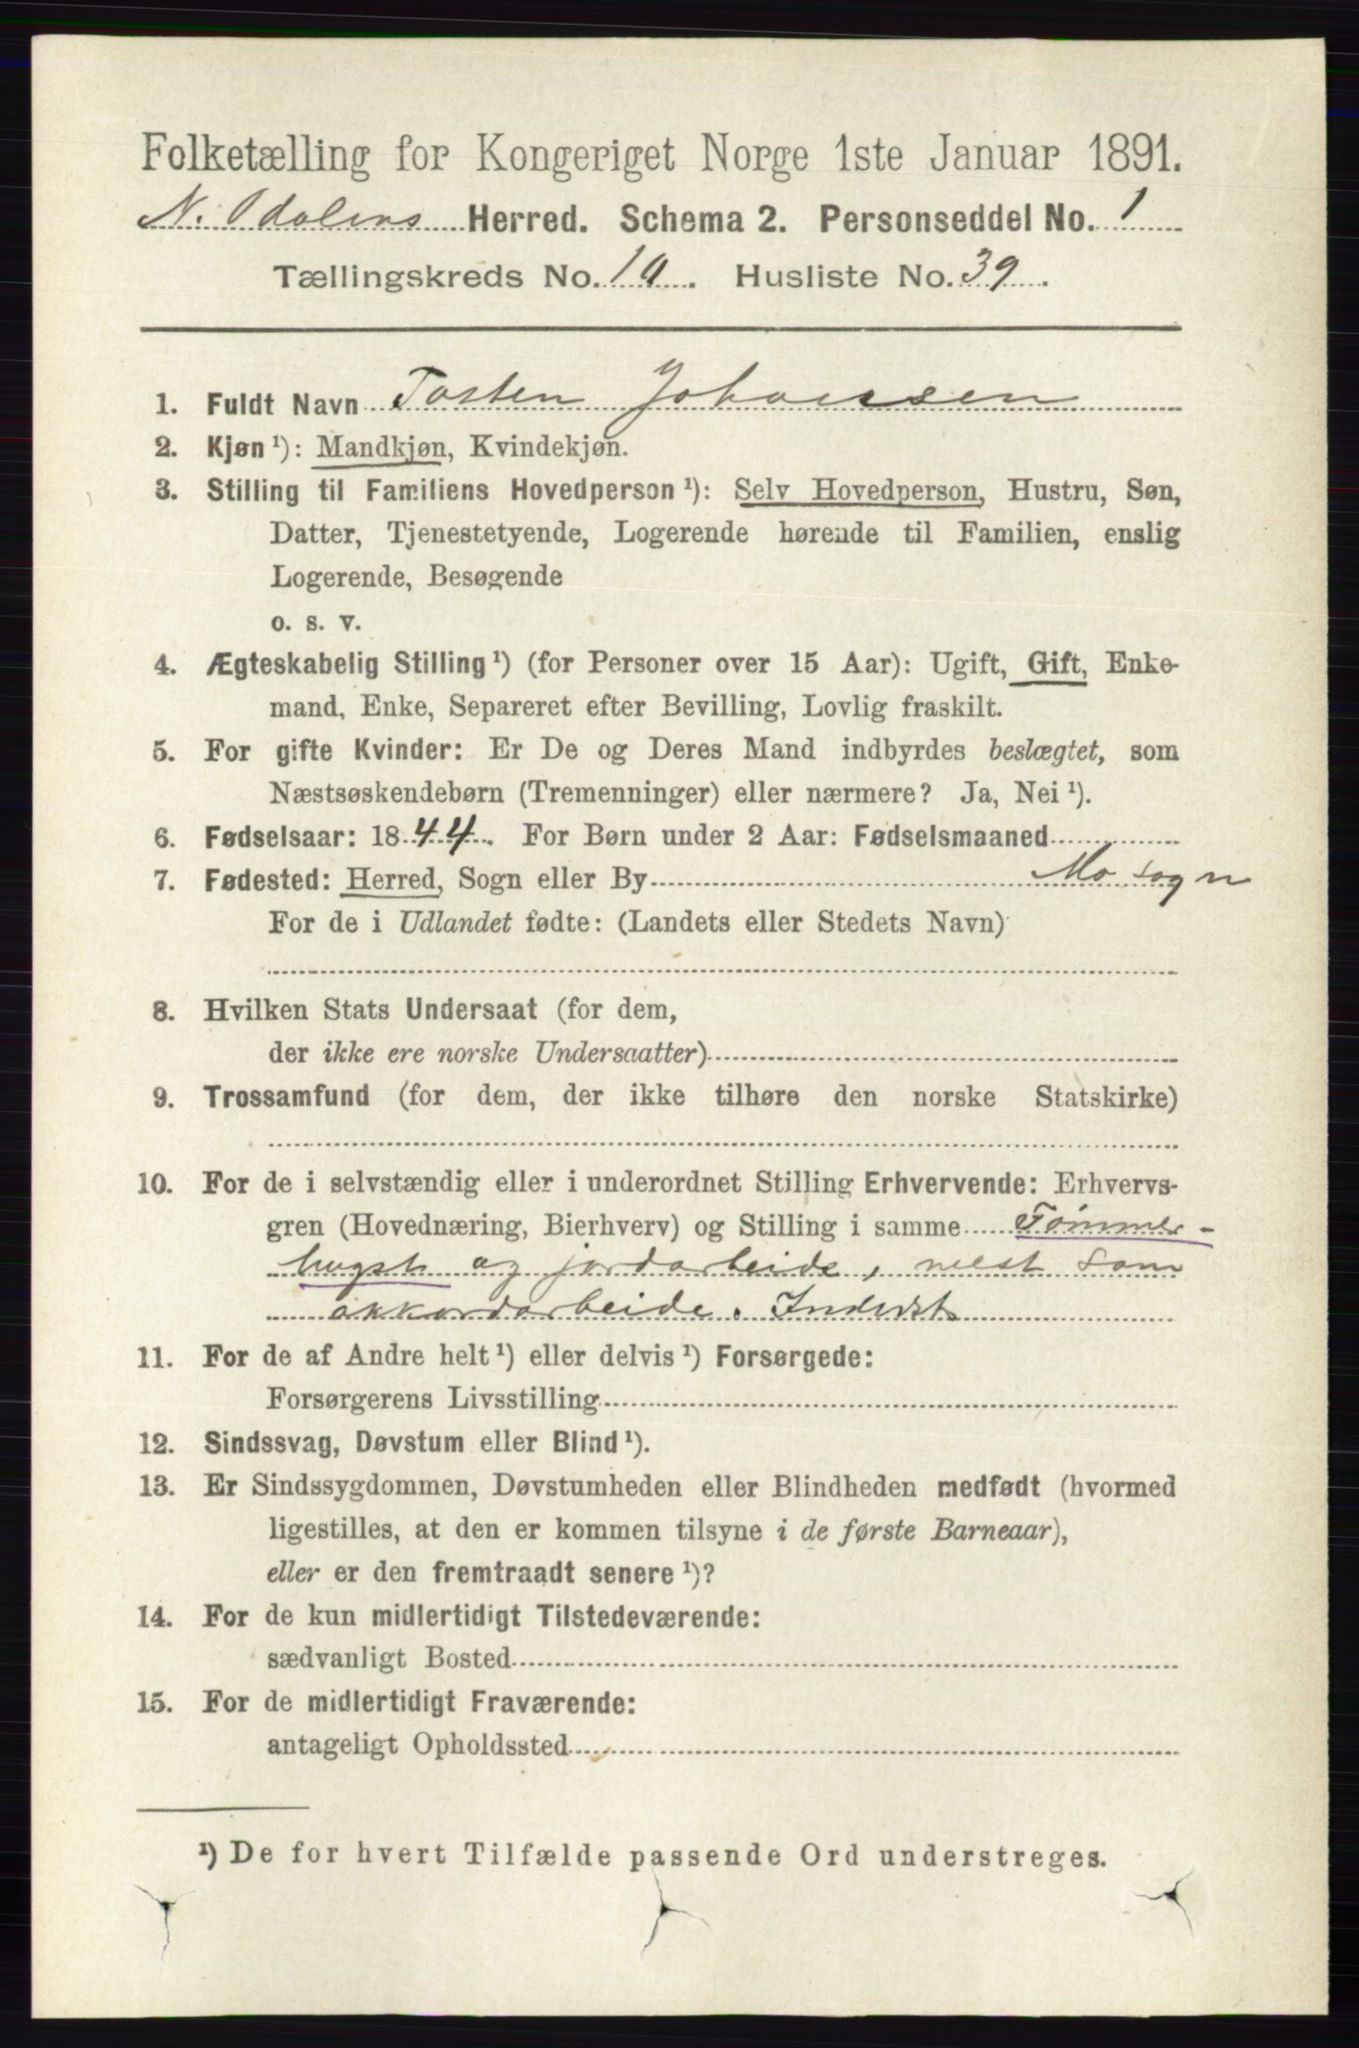 Folketælling for Kongeriget Norge 1ste Januar 1891.
N. Odalens Herred. Schema 2. Personseddel No. 1
Tællingskreds No. 10. Husliste No. 39.
1. Fuldt Navn Tosten Johansen
2. Kjøn¹): Mandkjøn, Kvindekjøn.
3. Stilling til Familiens Hovedperson¹): Selv Hovedperson, Hustru, Søn,
Datter, Tjenestetyende, Logerende hørende til Familien, enslig
Logerende, Besøgende
o. s. v.
4. Ægteskabelig Stilling¹) (for Personer over 15 Aar): Ugift, Gift, Enke-
mand, Enke, Separeret efter Bevilling, Lovlig fraskilt.
5. For gifte Kvinder: Er De og Deres Mand indbyrdes beslægtet, som
Næstsøskendebørn (Tremenninger) eller nærmere? Ja, Nei¹).
6. Fødselsaar: 1844. For Børn under 2 Aar: Fødselsmaaned
7. Fødested: Herred, Sogn eller By Mo sogn
For de i Udlandet fødte: (Landets eller Stedets Navn)
8. Hvilken Stats Undersaat (for dem,
der ikke ere norske Undersaatter)
9. Trossamfund (for dem, der ikke tilhøre den norske Statskirke)
10. For de i selvstændig eller i underordnet Stilling Erhvervende: Erhvervs-
gren (Hovednæring, Bierhverv) og Stilling i samme Tømmer-
hugst og jordarbeide, mest som
akkordarbeide. Inderst
11. For de af Andre helt¹) eller delvis¹) Forsørgede:
Forsørgerens Livsstilling
12. Sindssvag, Døvstum eller Blind¹).
13. Er Sindssygdommen, Døvstumheden eller Blindheden medfødt (hvormed
ligestilles, at den er kommen tilsyne i de første Barneaar),
eller er den fremtraadt senere¹)?
14. For de kun midlertidigt Tilstedeværende:
sædvanligt Bosted
15. For de midlertidigt Fraværende:
antageligt Opholdssted
¹) De for hvert Tilfælde passende Ord understreges.